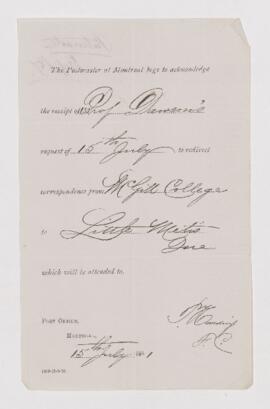 The Postmaster at Montreal begs to acknowledge
the receipt of Prof Dawson's
request of 15th July to redirect
correspondence from McGill College
to Little Metis
which will be attended to.
POST OFFICE,
MONTREAL
15th July